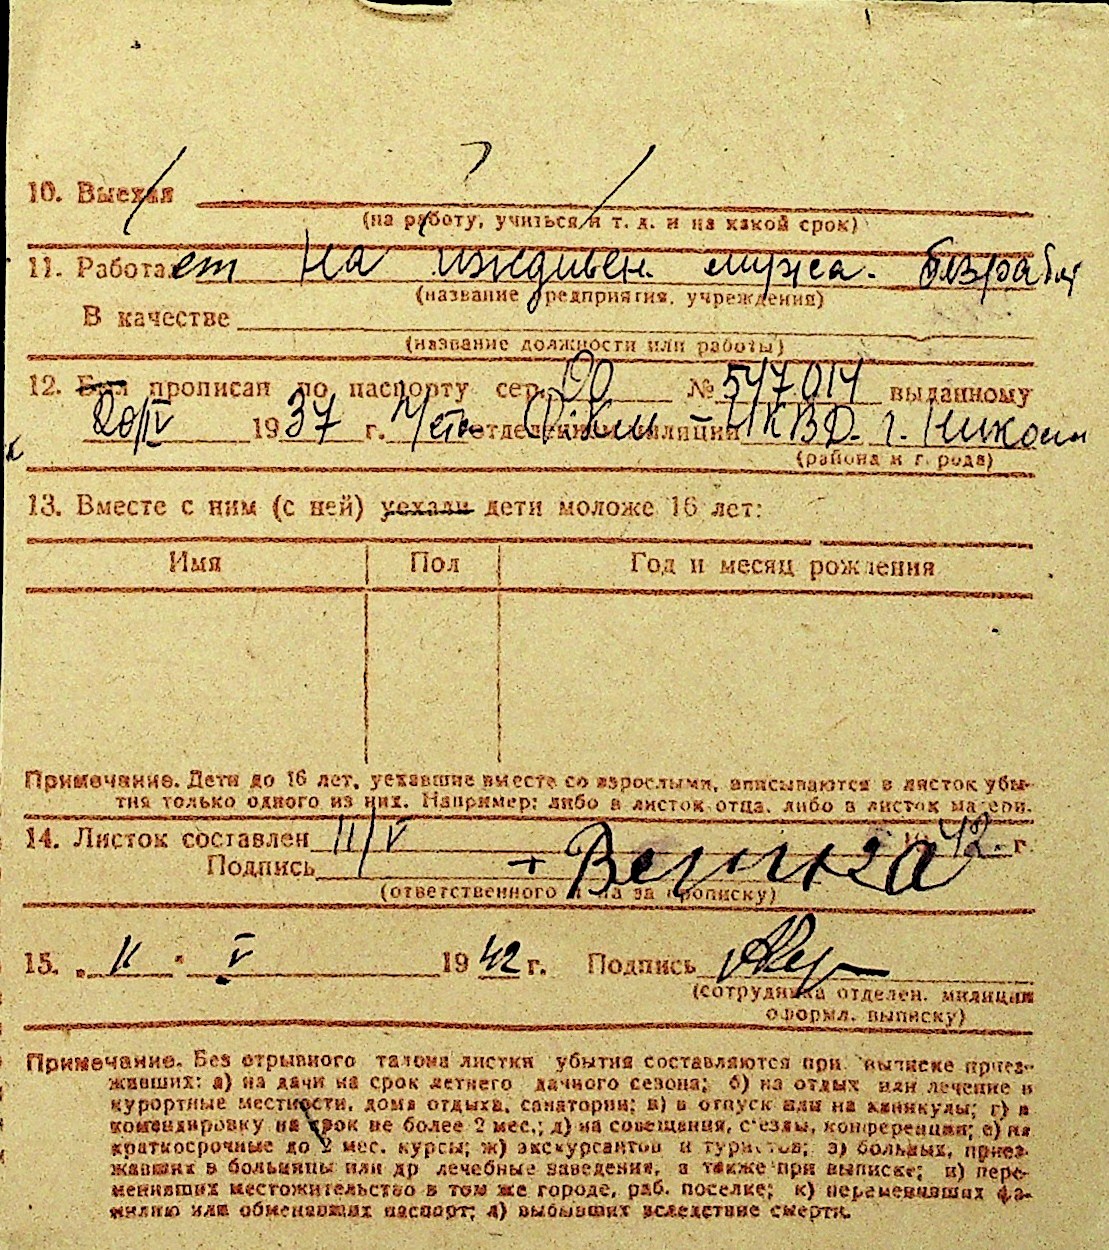 10. Выехал
(на работу, учиться и т. д. и на какой срок)
11. Работает На иждивен. мужа. безраб
(название предприятия, учреждения)
В качестве
(название должности или работы)
12. Был прописан по паспорту сер. № 547014 выданному
20/IV 1937 г. отделением милиции НКВД. г.
(района и города)
13. Вместе с ним (с ней) уехали дети моложе 16 лет:
Имя Пол Год и месяц рождения
Примечание. Дети до 16 лет, уехавшие вместе со взрослыми, вписываются в листок убы-
тия только одного из них. Например: либо в листок отца, либо в листок матери.
14. Листок составлен 11/V 1942. г.
Подпись +
(ответственного лица за прописку)
15. „ 11 " V 1942 г. Подпись
(сотрудника отделен. милиции
оформл. выписку)
Примечание. Без отрывного талона листки убытия составляются при выписке приез-
жавших: а) на дачи на срок летнего дачного сезона; б) на отдых или лечение в
курортные местности, дома отдыха, санатории; в) в отпуск или на каникулы; г) в
командировку на срок не более 2 мес.; д) на совещания, съезды, конференции; е) на
краткосрочные до 2 мес. курсы; ж) экскурсантов и туристов; з) больных, приез-
жавших в больницы или др лечебные заведения, а также при выписке; и) пере-
менивших местожительство в том же городе, раб. поселке; к) переменивших фа-
милию или обменявших паспорт; л) выбывших вследствие смерти.